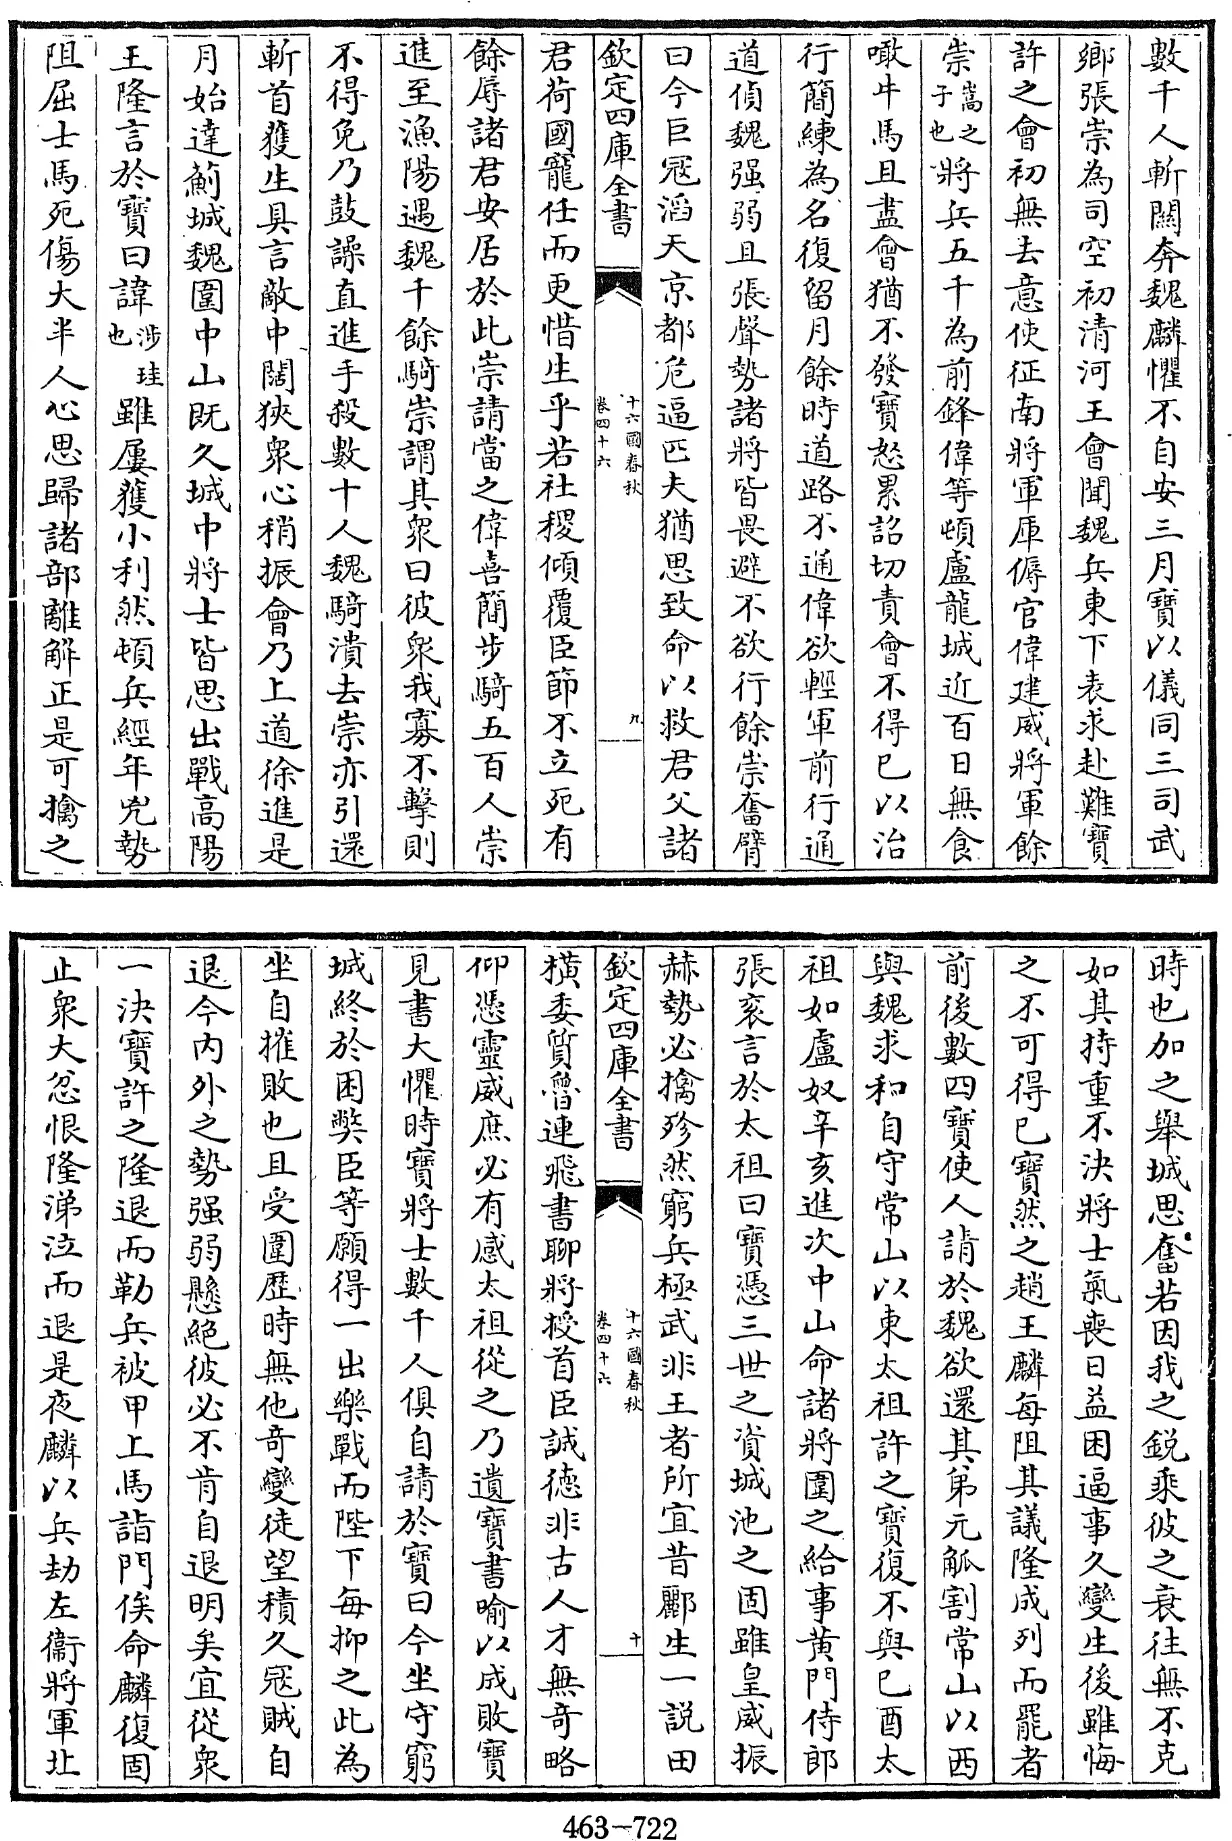 數千人斬關奔魏麟懼不自安三月寶以儀同三司武
鄉張崇為司空初清河王會聞魏兵東下表求赴難寶
許之會初無去意使征南將軍厙傉官偉建威將軍餘
崇嵩之子也將兵五千為前鋒偉等頓盧龍城近百日無食
噉牛馬且盡會猶不發寶怒累詔切責會不得已以治
行簡練為名復留月餘時道路不通偉欲輕軍前行通
道偵魏强弱且張聲勢諸將皆畏避不欲行餘崇奮臂
曰今巨冦滔天京都危逼匹夫猶思致命以救君父諸
欽定四庫全書
十六國春秋
卷四十六
九
君荷國寵任而更惜生乎若社稷傾覆臣節不立死有
餘辱諸君安居於此崇請當之偉喜簡步騎五百人崇
進至漁陽遇魏千餘騎崇謂其衆曰彼衆我寡不擊則
不得免乃鼓譟直進手殺數十人魏騎潰去崇亦引還
斬首獲生具言敵中闊狹衆心稍振會乃上道徐進是
月始達薊城魏圍中山既久城中將士皆思出戰高陽
王隆言於寶曰諱涉珪也雖屢獲小利然頓兵經年兇勢
阻屈士馬死傷大半人心思歸諸部離解正是可擒之
時也加之舉城思奮若因我之鋭乘彼之衰往無不克
如其持重不決將士氣喪日益困逼事久變生後雖悔
之不可得已寶然之趙王麟每阻其議隆成列而罷者
前後數四寶使人請於魏欲還其弟元觚割常山以西
與魏求和自守常山以東太祖許之寶復不與已酉太
祖如盧奴辛亥進次中山命諸將圍之給事黃門侍郎
張衮言於太祖曰寶憑三世之資城池之固雖皇威振
赫勢必擒殄然窮兵極武非王者所宜昔酈生一說田
欽定四庫全書
十六國春秋
卷四十六
十
橫委質魯連飛書聊將授首臣誠德非古人才無奇略
仰憑靈威庶必有感太祖從之乃遺寶書喻以成敗寶
見書大懼時寶將士數千人俱自請於寶曰今坐守窮
城終於困弊臣等願得一出樂戰而陛下每抑之此為
坐自摧敗也且受圍歷時無他奇變徒望積久冦賊自
退今內外之勢强弱懸絕彼必不肯自退明矣宜從衆
一決寶許之隆退而勒兵被甲上馬詣門俟命麟復固
止衆大忿恨隆涕泣而退是夜麟以兵劫左衛將軍北
463-722